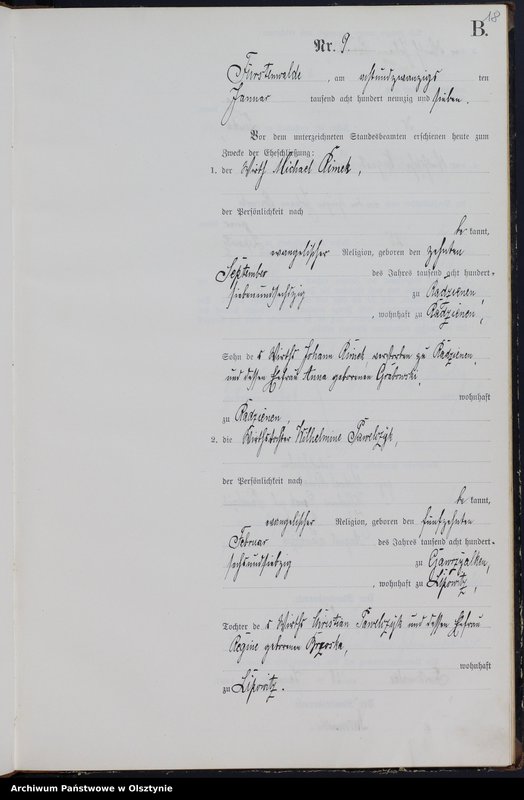 18
B.
Nr. 9.
Fürstenwalde, am achtundzwanzigs ten
Januar tausend acht hundert neunzig und sieben.
Vor dem unterzeichneten Standesbeamten erschienen heute zum
Zwecke der Eheschließung:
1. der Wirth Michael Kimek,
der Persönlichkeit nach
be kannt,
evangelischer Religion, geboren den zehnten
September des Jahres tausend acht hundert
siebenundsechszig zu Radzienen,
, wohnhaft zu Radzienen,
Sohn des Wirths Johann Kimek, verstorben zu Radzienen,
und dessen Ehefrau Anna geborenen Grabowski,
wohnhaft
zu Radzienen,
2. die Wirthstochter Wilhelmine Pawelczyk,
der Persönlichkeit nach
be kannt,
evangelischer Religion, geboren den fünfzehnten
Februar des Jahres tausend acht hundert
sechsundsiebzig zu Gawrzyalken,
, wohnhaft zu Lipowitz,
Tochter des Wirths Christian Pawelczyk und dessen Ehefrau
Regine geborenen
wohnhaft
zu Lipowitz.
Archiwum Państwowe w Olsztynie